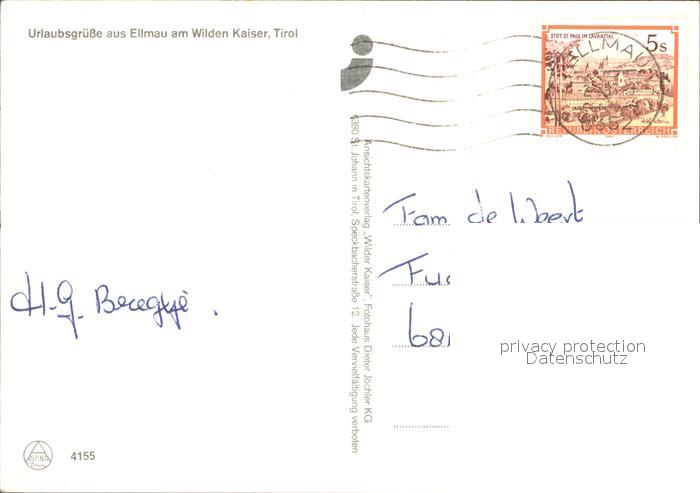 Urlaubsgrüße aus Ellmau am Wilden Kaiser, Tirol
STIFT ST. PAUL IM LAVANTTAL
5s
ELLMAU
REPUBLIK ÖSTERREICH
Ansichtskartenverlag „Wilder Kaiser", Fotohaus Dieter Jöchler KG
6380 St. Johann in Tirol, Speckbacherstraße 12. Jede Vervielfältigung verboten
Fam de
H.G.
privacy protection
Datenschutz
ALPINA
Druck
4155